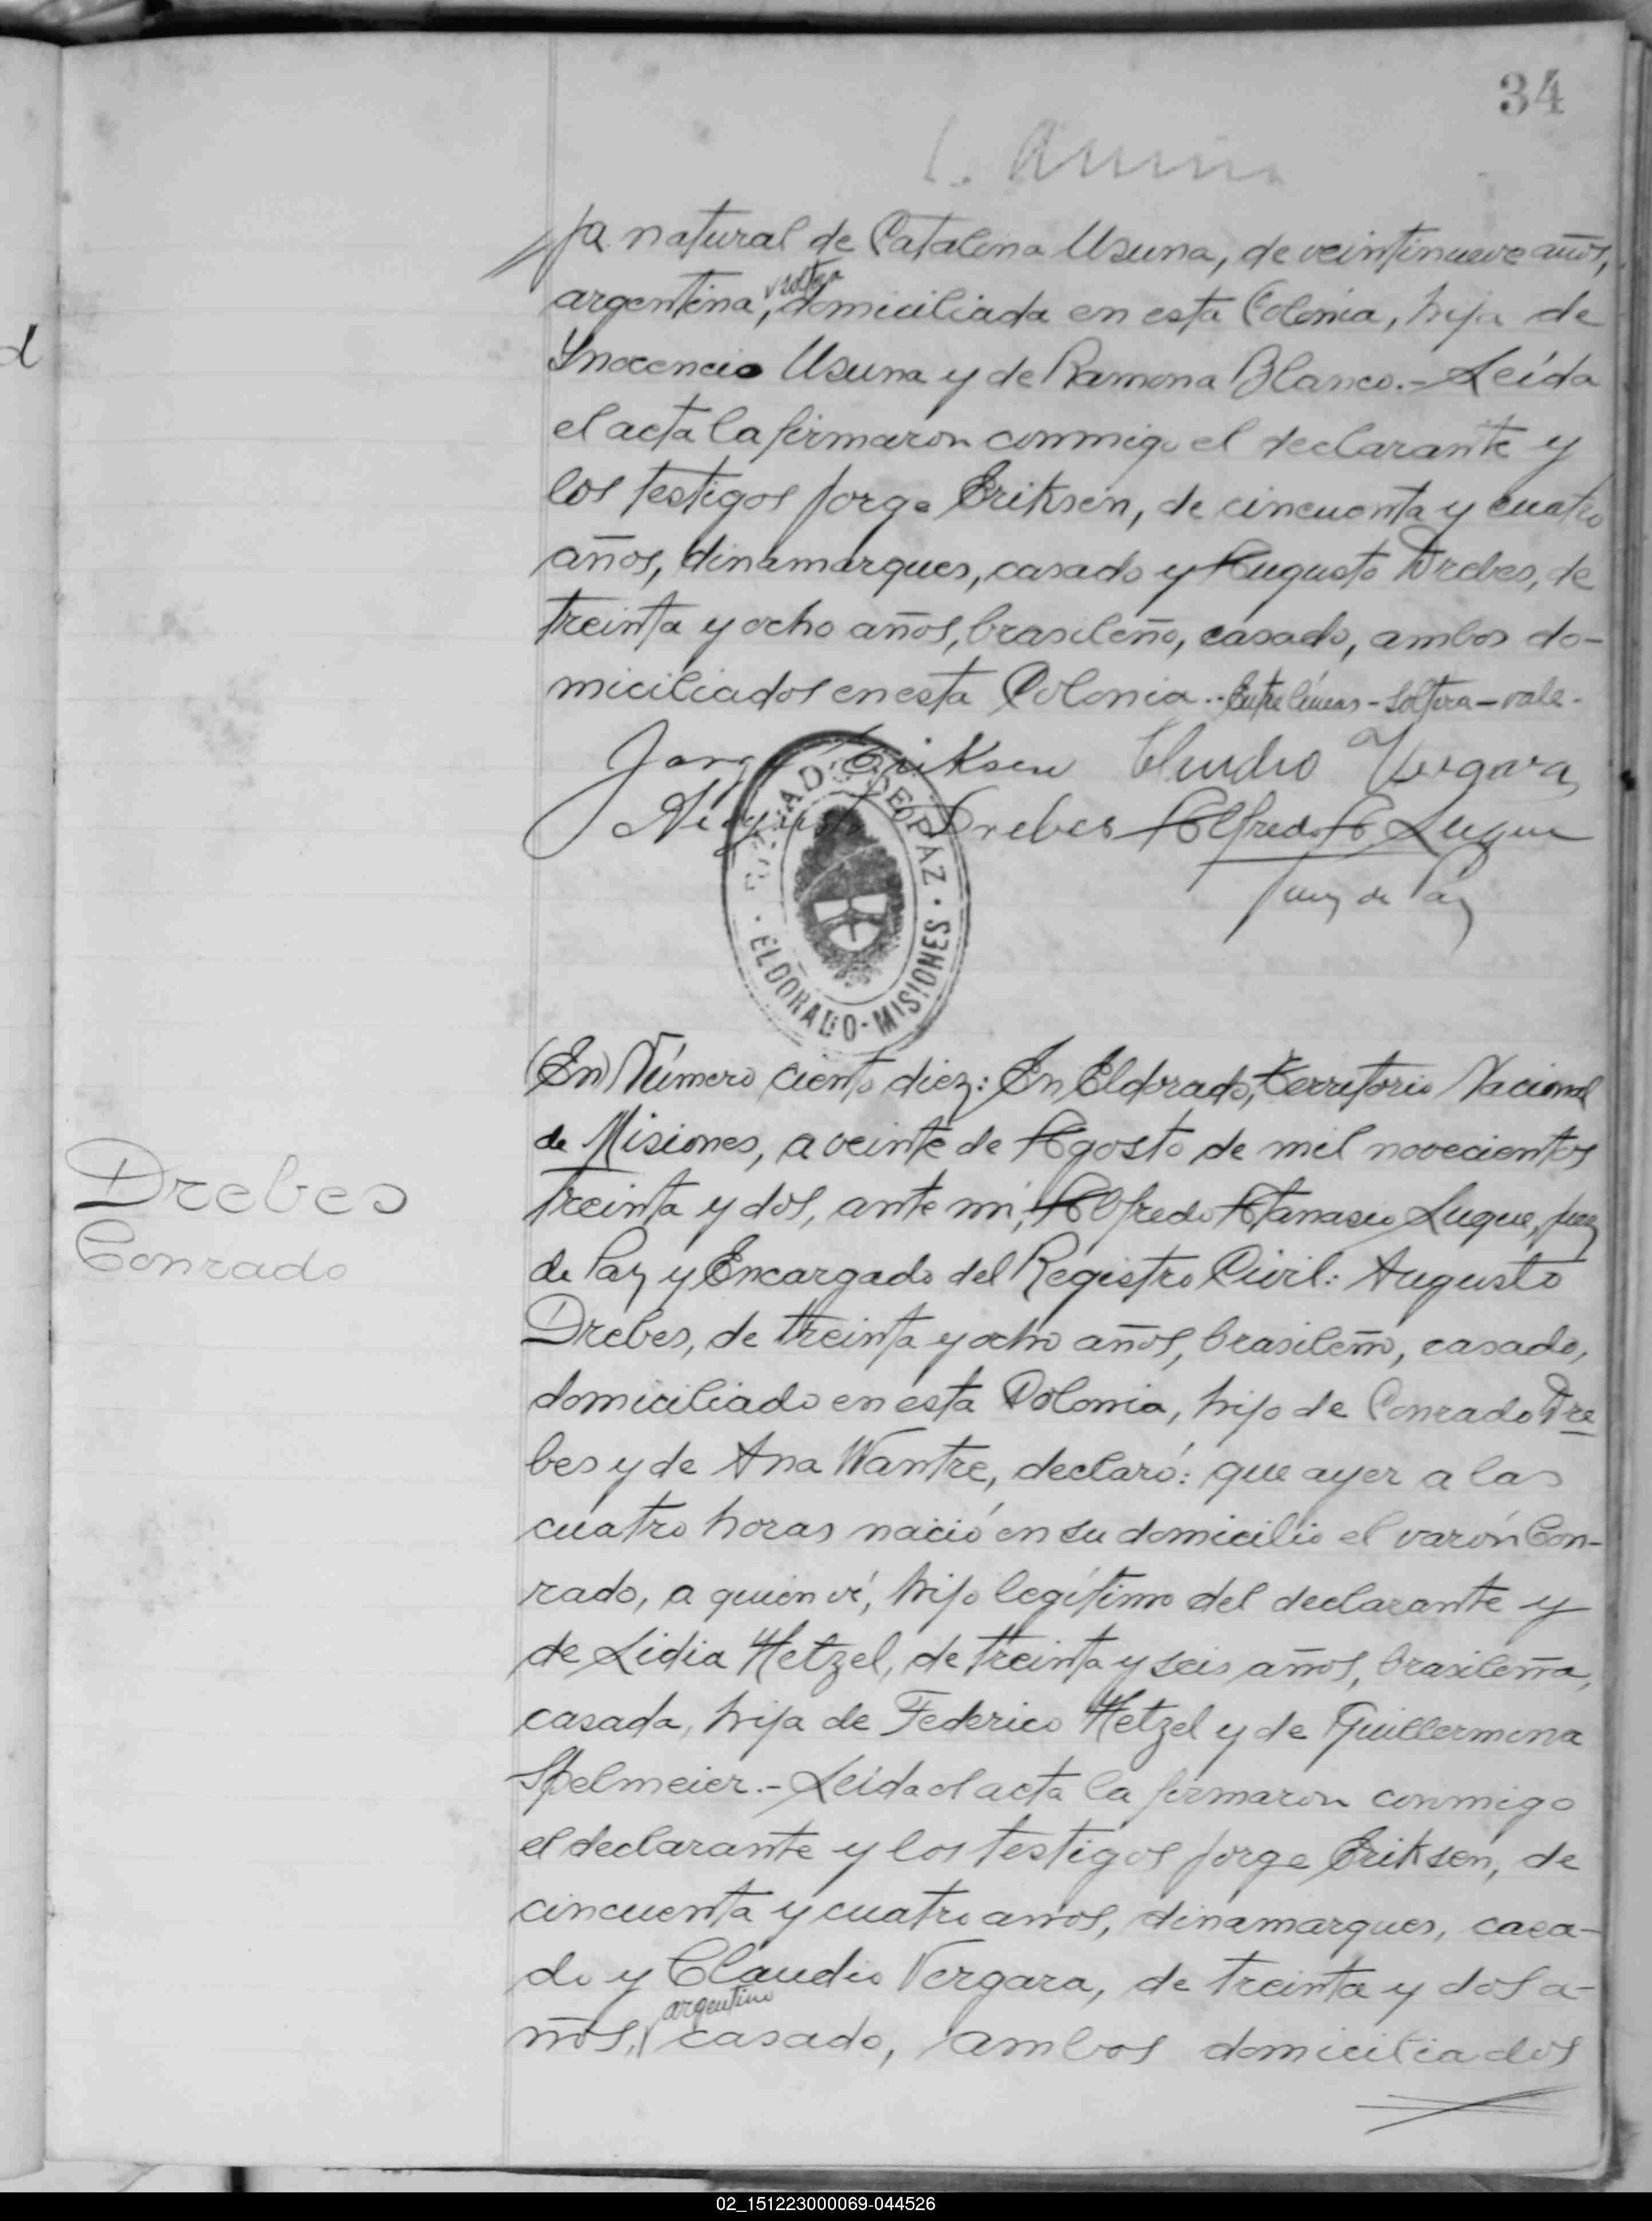 34
d
ja natural de Catalina Usuna, de veintinueve años,
soltera
argentina, domiciliada en esta Colonia, hija de
Ynocencio Usuna y de Ramona Blanco.- Leída
el acta la firmaron conmigo el declarante y
los testigos Jorge Eriksen, de cincuenta y cuatro
años, dinamarques, casado y Augusto Drebes, de
treinta y ocho años, brasileño, casado, ambos do-
miciliados en esta Colonia.- Entre líneas - soltera - vale.
Jorge Eriksen Claudio Vergara
Augusto Drebes Alfredo A Luque
Juez de Paz
JUZGADO DE PAZ
ELDORADO - MISIONES
(En) Número ciento diez: En Eldorado, Territorio Nacional
de Misiones, a veinte de Agosto de mil novecientos
Drebes
Conrado
treinta y dos, ante mi, Alfredo Atanasio Luque, Juez
de Paz y Encargado del Registro Civil: Augusto
Drebes, de treinta y ocho años, brasileño, casado,
domiciliado en esta Colonia, hijo de Conrado Dre
bes y de Ana Wantre, declaró: que ayer a las
cuatro horas nació en su domicilio el varón Con-
rado, a quien ví, hijo legítimo del declarante y
de Lidia Hetzel, de treinta y seis años, brasileña,
casada, hija de Federico Hetzel y de Guillermina
Spelmeier.- Leída el acta la firmaron conmigo
el declarante y los testigos Jorge Eriksen, de
cincuenta y cuatro años, dinamarques, casa-
do y Claudio Vergara, de treinta y dos a-
argentino
ños, casado, ambos domiciliados
02_151223000069-044526